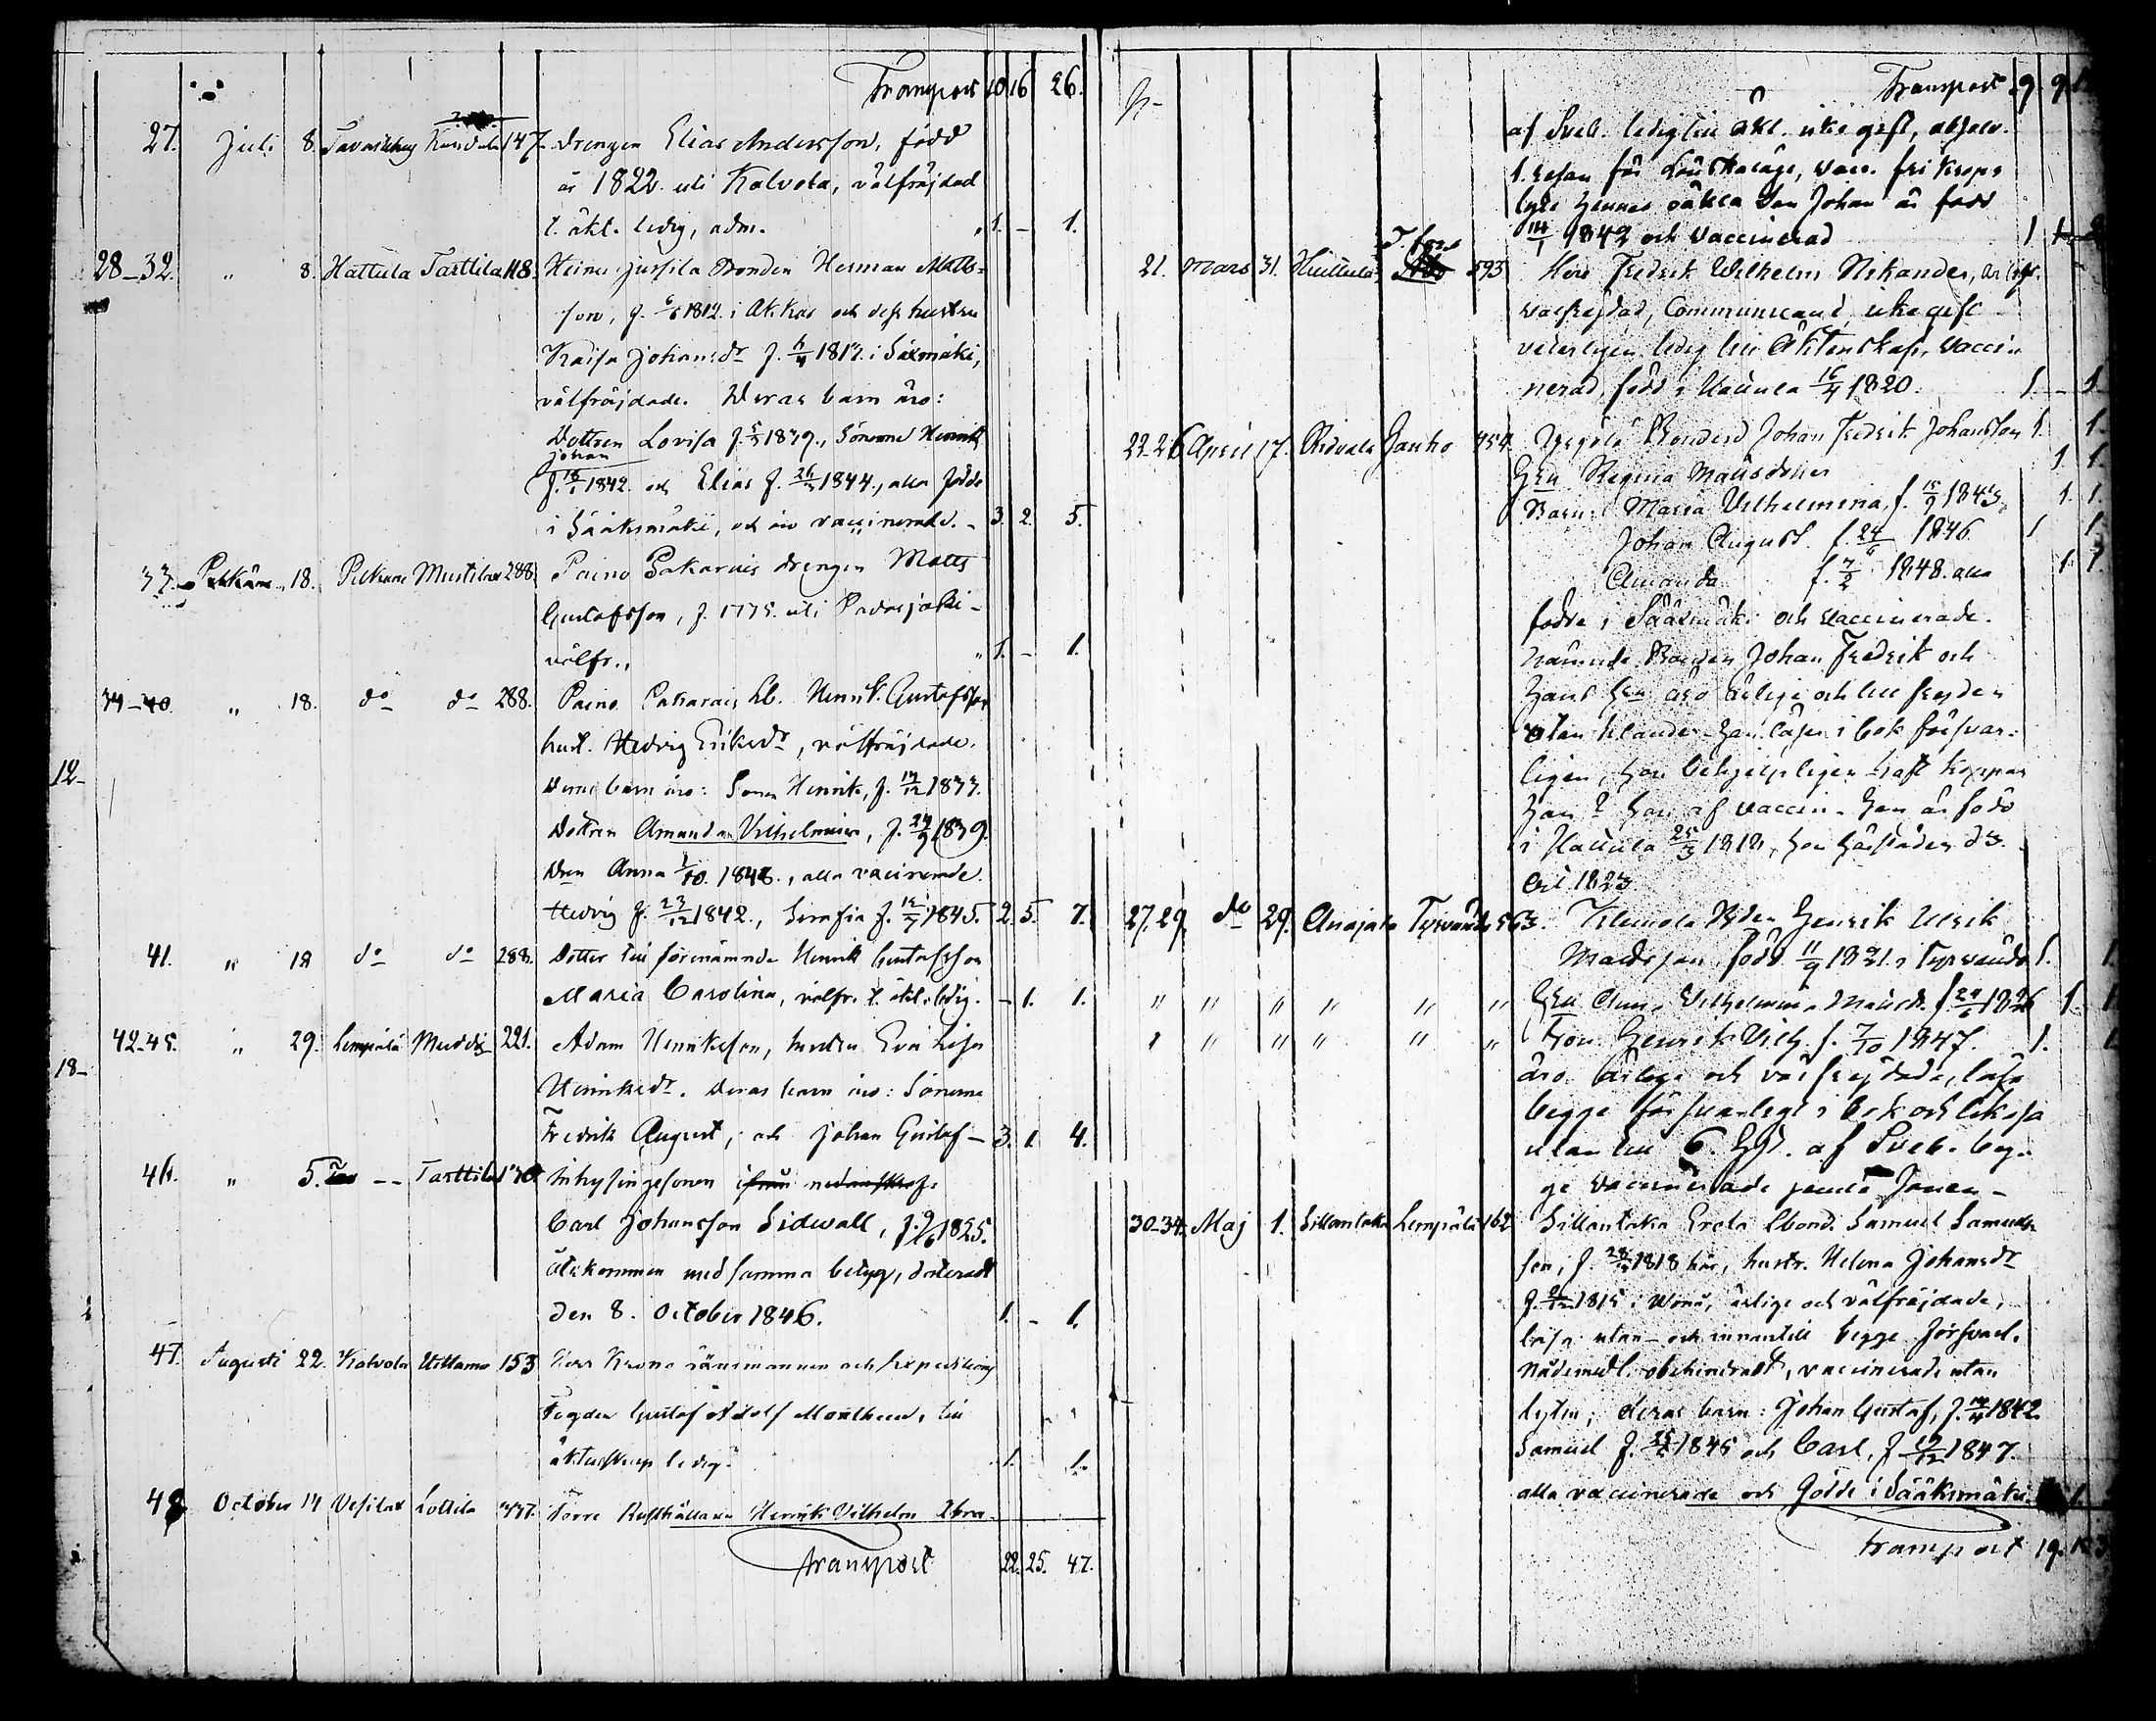 Transport 10 16 26.
27. Juli 8. Tavastehus 147. drengen Elias Andersson, född
år 1822. uti Kalvola, välfräjdad
t. äkt. ledig, adm. 1. - 1.
28-32. " 8. Hattula Tarttila 118. Heinu Jussila Bonden Herman Matts-
son, f. 1812. i Akkas och dess hustru
Kaisa Johansdr f. 1817. i Säxmäki,
välfräjdade. Deras barn äro:
Dottren Lovisa f. 1839., Sönerne Henrik
Johan
f. 1842. och Elias f. 26/3 1844., alla födde
i Sääksmäki, och äro vaccinerade. - 3. 2. 5.
33. Pelkäne 18. Pelkäne Mustila 288. Paino Pakarais drengen Matts
Gustafsson, f. 1775. uti Padasjoki -
välfr., " 1. - 1.
34-40. " 18. do do 288. Paino Pakarais Henrik Gustafsson
hust. Hedvig Eriksdr, välfräjdade.
Deras barn äro: Sonen Henrik, f. 1833.
Dottren Amanda Vilhelmina, f. 24/9 1839.
Dren Anna 1/10. 1848., alla vaccinerade.
Hedvig f. 23/12 1842., Serafia f. 1845. 2. 5. 7.
41. " 18 do do 288. Dotter till förenämnde Henrik Gustafsson
Maria Carolina, välfr. t. äkt. ledig. - 1. 1.
42-45. " 29. Lempälä 221. Adam Henriksson, hustru Eva Lisa
Henriksdr. Deras barn äro: Sönerne
Fredrik August, och Johan Gustaf - 3. 1 4.
46. " 5. -- Tarttila Inhysingesonen
Carl Johansson Sidwall, f. 9/6 1825.
återkommen med samma betyg, dateradt
den 8. October 1846. 1. - 1.
47. Augusti 22. Kalvola 153 Herr Krono Länsmannen och Expeditions
Fogden Gustaf Adolf till
äktenskap ledig. 1. 1.
48 October 14 Vesilax Lottila Förre Rusthållaren Henrik Vilhelm
Transport 22. 25. 47.
12-
18-
Transport 9. 9.
af Sveb. ledig till äkt. icke gift, absolv.
1. resan för Lönskaläge, vacc. fri
lyte hennes oäkta Son Johan är född
14/1 1842 och vaccinerad 1 1
21. Mars 31. 593 Herr Fredrik Wilhelm Nikander,
välfrejdad, Communicant, icke gift
veterligen ledig till Äktenskap, vacci
nerad, född i Hattula 16/4 1820. 1. - 1.
22-26 April 17. Ridvala Janho 454. Bonden Johan Fredrik Johansson 1. 1.
Hru Regina Mattsdotter 1. 1.
Barn: Maria Vilhelmina, f. 15/9 1843. 1. 1.
Johan August f. 24/6 1846 1 1.
Amanda f. 7/2 1848. alla 1. 1.
födde i Sääxmäki och vaccinerade.
nämnde Bonden Johan Fredrik och
hans hru äro ärlige och till frejden
utan klander - han läser i bok försvar-
ligen, hon behjelpligen - haft koppor
han? hon af vaccin - han är född
i Hattula 25/3 1818, hon härstädes d 3.
Oct. 1823
27, 29 do 29. Anajala Tyrvändö 563. Klemola Bden Henrik Ulrik
Mattsson, född 11/9 1821. i Tyrvändö 1. 1.
" " " " " " Hru Anna Vilhelmina Mattsdr f. 1826 1. 1
" " " " " " Son Henrik Vilh. f. 7/10 1847. 1. 1
äro ärlige och välfrejdade, läsa
begge försvarligt i bok och likaså
utan till 6. af Sveb. beg-
ge vaccinerade jemte Sonen -
30-34. Maj 1. Sillantaka Lempälä 162 Sillantaka Bond. Samuel Samuels
son, f. 1818 här, hustr. Helena Johansdr
f. 1815 i ärlige och välfräjdade,
läsa utan - och innantill begge försvarl.
Nådemedl. obehindradt, vaccinerade utan
lyten; deras barn: Johan Gustaf, f. 1842
Samuel f. 1845 och Carl, f. 1847.
alla vaccinerade och födde i Sääksmäki.
Transport 19.